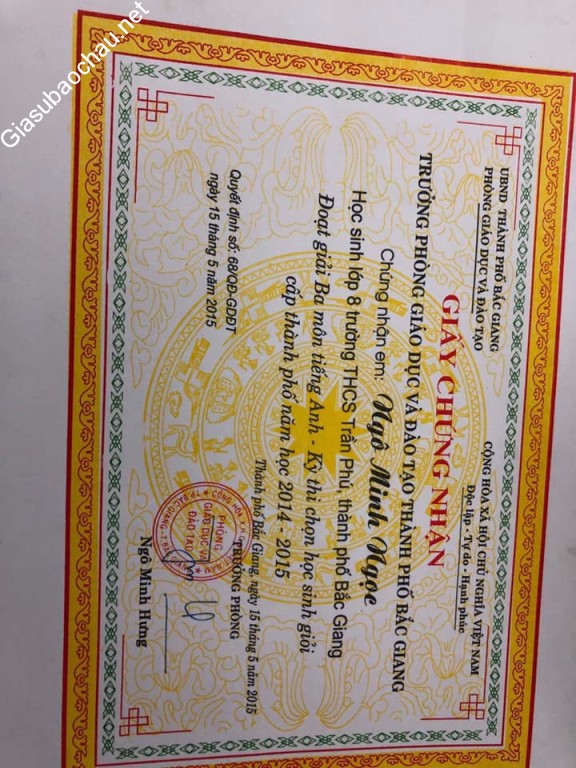 Giasubaochau.net
UBND THÀNH PHỐ BẮC GIANG
PHÒNG GIÁO DỤC VÀ ĐÀO TẠO
CỘNG HÒA XÃ HỘI CHỦ NGHĨA VIỆT NAM
Độc lập - Tự do - Hạnh phúc
GIẤY CHỨNG NHẬN
TRƯỞNG PHÒNG GIÁO DỤC VÀ ĐÀO TẠO THÀNH PHỐ BẮC GIANG
Chứng nhận em: Ngô Minh Ngọc
Học sinh lớp 8 trường THCS Trần Phú, thành phố Bắc Giang
Đoạt giải Ba môn tiếng Anh - Kỳ thi chọn học sinh giỏi
cấp thành phố năm học 2014 - 2015
Quyết định số: 68/QĐ-GDĐT
ngày 15 tháng 5 năm 2015
Thành phố Bắc Giang, ngày 15 tháng 5 năm 2015
TRƯỞNG PHÒNG
PHÒNG
GIÁO DỤC VÀ
ĐÀO TẠO
Ngô Minh Hưng